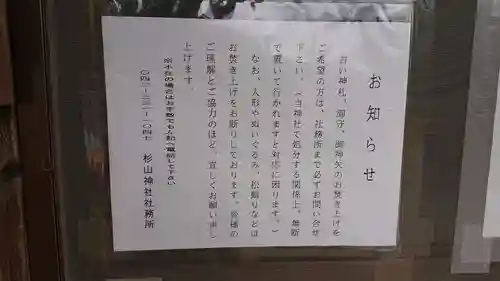 お知らせ
古い神札、御守、御神矢のお焚き上げを
ご希望の方は、社務所まで必ずお問い合せ
下さい。(当神社で処分する関係上、無断
で置いて行かれますと対応に困ります。)
なお、人形やぬいぐるみ、松飾りなどは
お焚き上げをお断りしております。皆様の
ご理解とご協力のほど、宜しくお願い申し
上げます。
※不在の場合はお手数でも人記へ電話して下さい
〇四二―三三一―一〇四七
杉山神社社務所